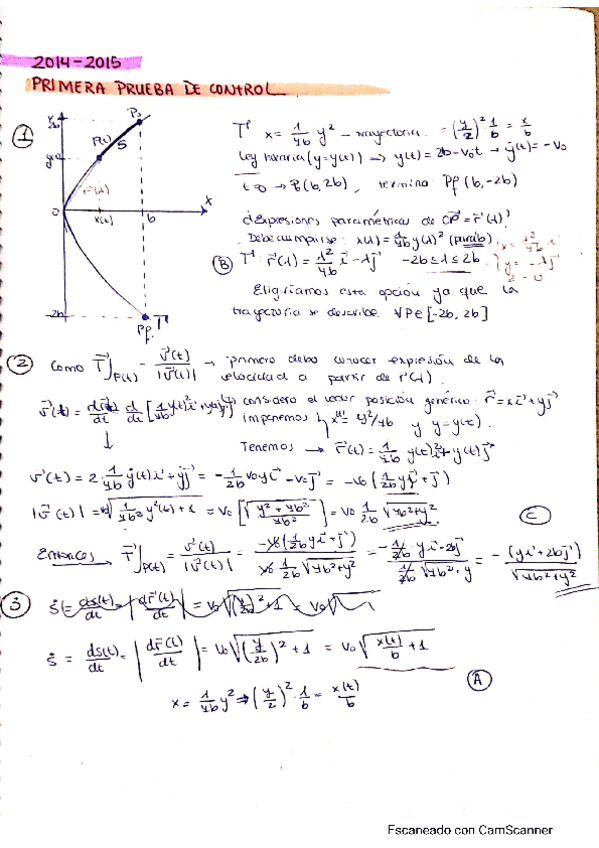 2014-2015
PRIMERA PRUEBA DE CONTROL
①
y
2b
P₀
P(t)
S
y(t)
r(t)
0
x(t)
b
x
-2b
Pf.
T
T x = 1/4b y² - trayectoria = (y/2)² 1/b = x/b
Ley horaria (y=y(t)) => y(t) = 2b-v₀t → ẏ(t) = -v₀
t=0 → P₀(b,2b), termina Pf(b,-2b)
¿Expresiones paramétricas de OP = r(t)?
Debe cumplirse: x(λ) = 1/4b y(λ)² (parab)
Ⓑ T: r(λ) = λ²/4b i - λj -2b ≤ λ ≤ 2b
Eligiríamos esta opción ya que la
trayectoria se describe ∀P∈[-2b, 2b]
② Como T]P(t) = v(t)/|v(t)| → primero debo conocer expresión de la
velocidad a partir de r(t).
v(t) = dr(t)/dt = d/dt [1/4b y(t)² i + y(t)j] considero el vector posición genérico r = xi + yj
imponemos x = y²/4b y y=y(t).
↓
Tenemos → r(t) = 1/4b y(t)² i + y(t) j
v(t) = 2 · 1/4b ẏ(t) i + ẏj = - 1/2b v₀ y i - v₀ j = -v₀ (1/2b y i + j)
|v(t)| = v₀ √(1/4b² y²(t) + 1) = v₀ [√((y² + 4b²)/4b²)] = v₀ 1/2b √(4b²+y²)
Ⓒ
Entonces T]P(t) = v(t)/|v(t)| = -v₀(1/2b y i + j) / v₀ 1/2b √(4b²+y²) = -1/2b · y i - 2bj / 1/2b √(4b² + y = - (y i + 2b j)/√(4b²+y²)
③
ṡ = ds(t)/dt = |dr(t)/dt| = v₀ √((y/2b)² + 1) = v₀ √(x(t)/b + 1)
Ⓐ
x = 1/4b y² => (y/2)² · 1/b = x(t)/b
Escaneado con CamScanner